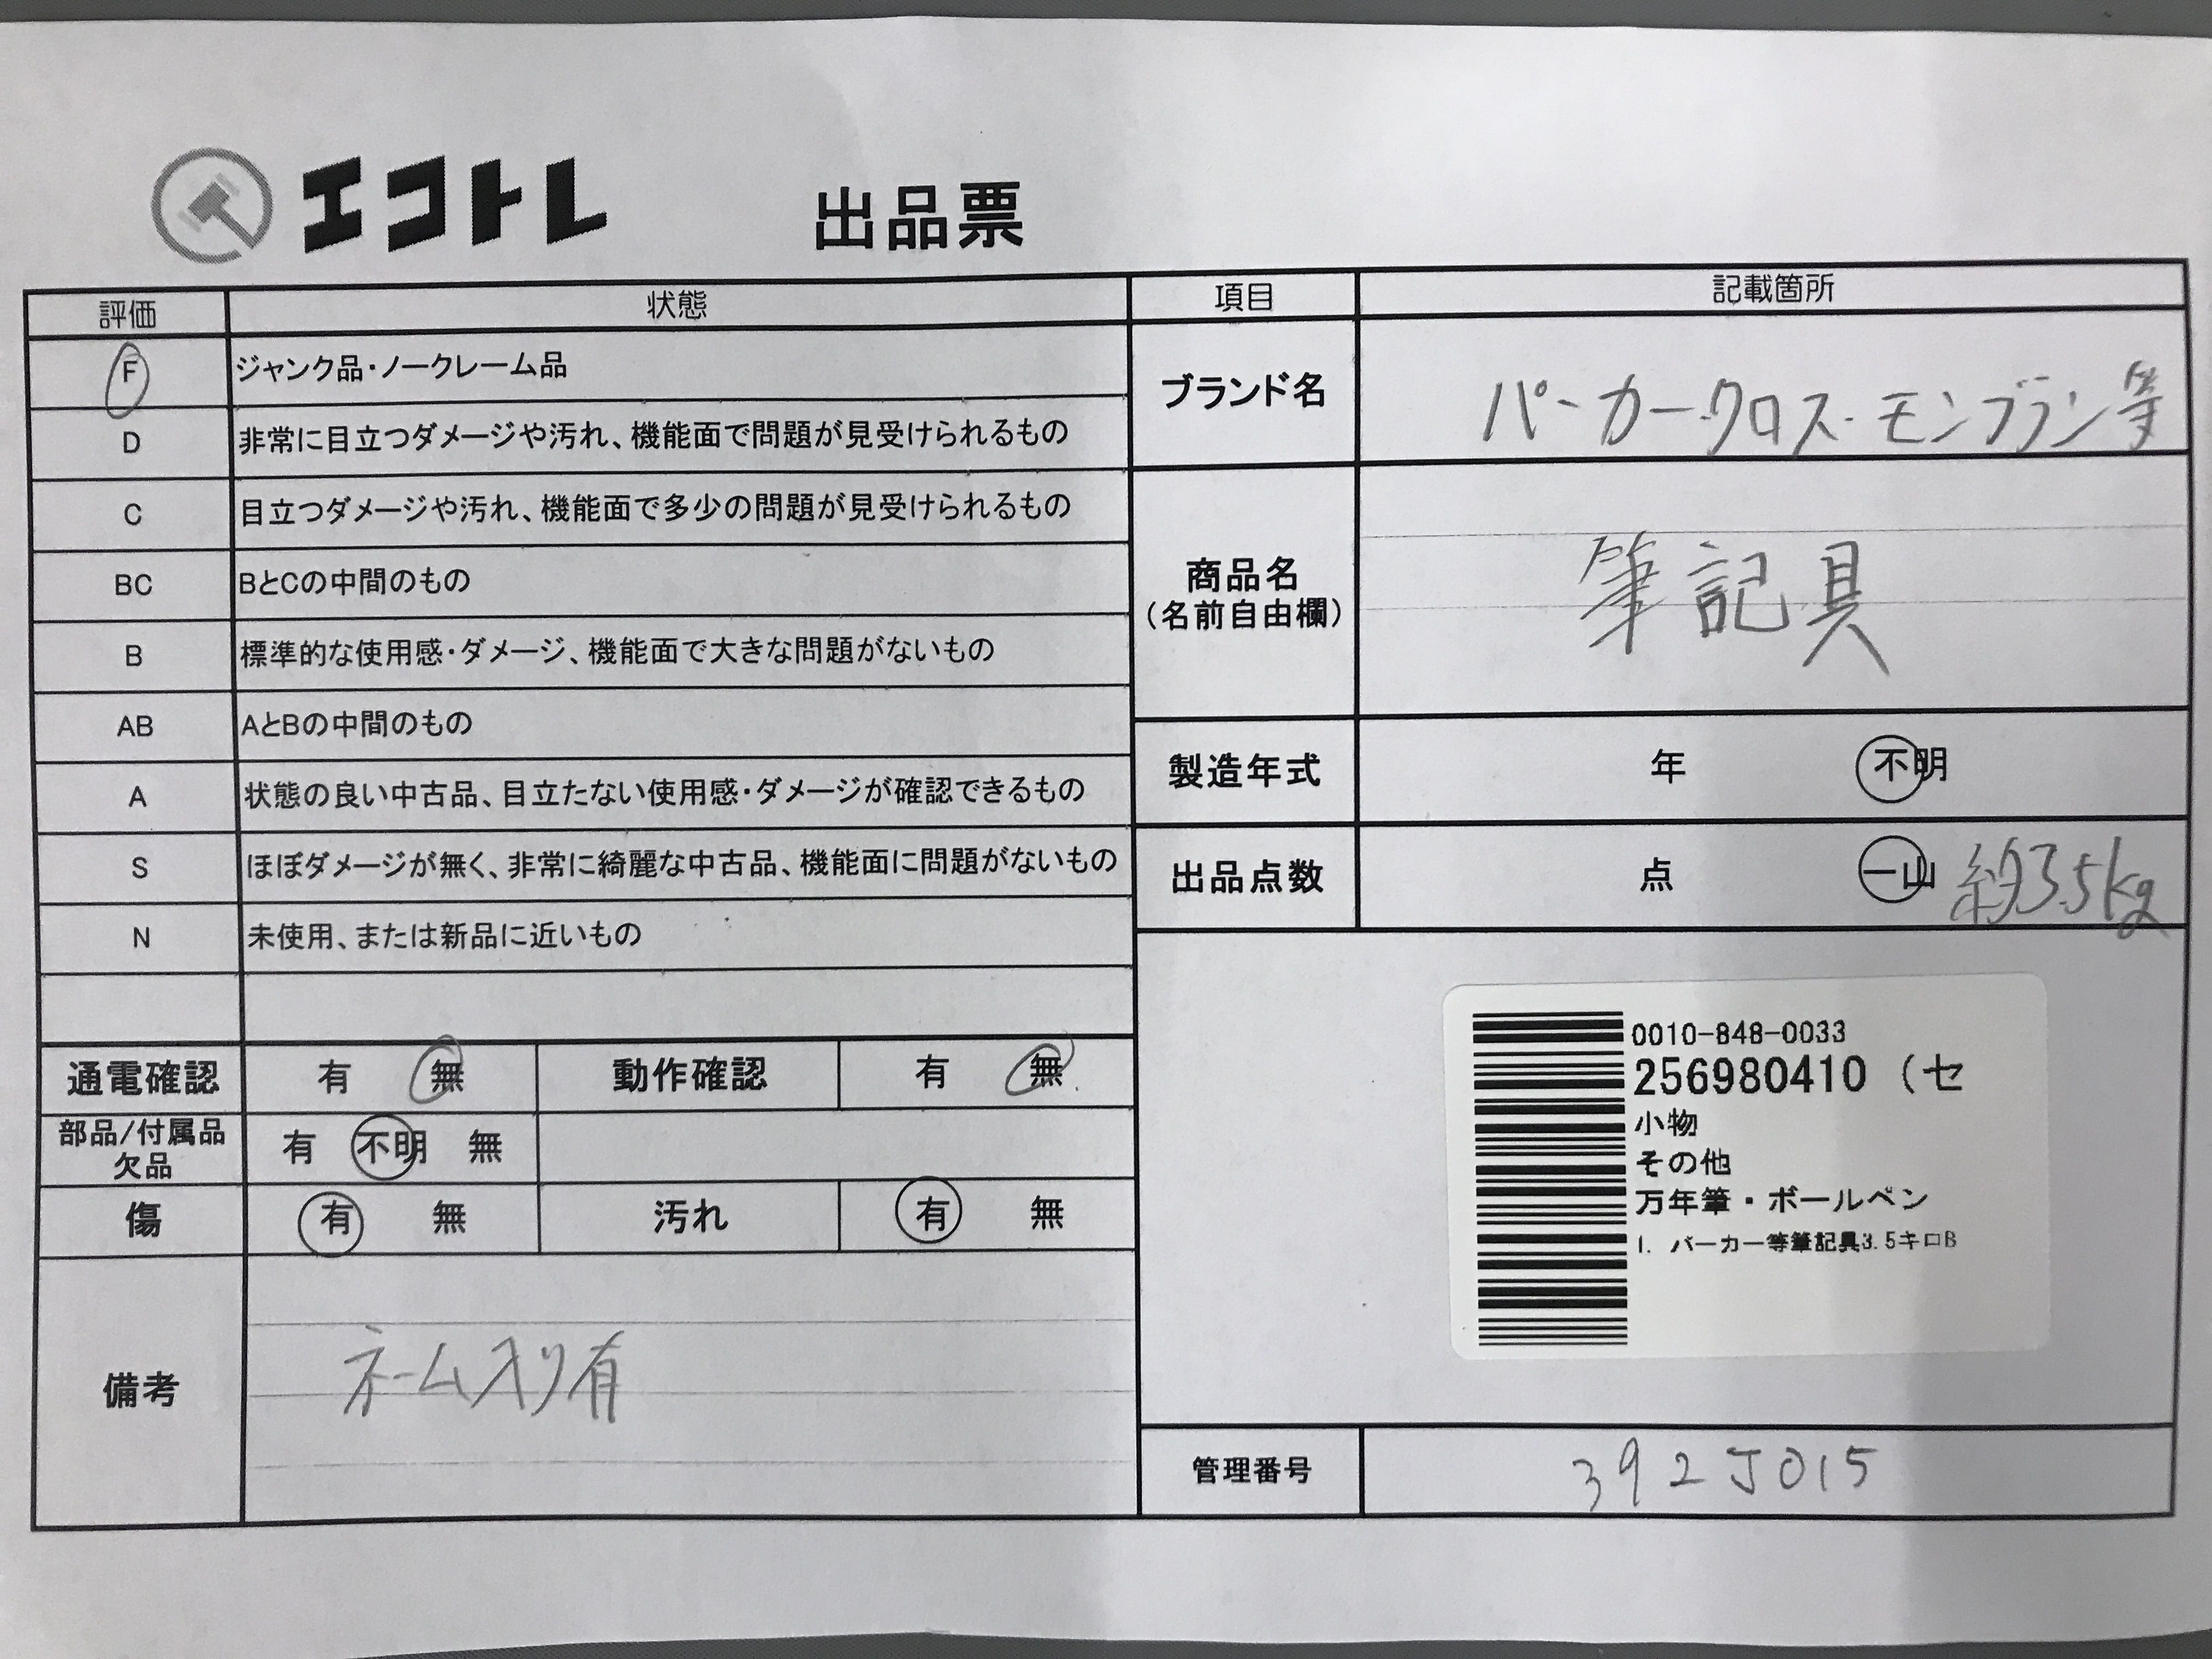 エコトレ
出品票
評価 状態
F ジャンク品・ノークレーム品
D 非常に目立つダメージや汚れ、機能面で問題が見受けられるもの
C 目立つダメージや汚れ、機能面で多少の問題が見受けられるもの
BC BとCの中間のもの
B 標準的な使用感・ダメージ、機能面で大きな問題がないもの
AB AとBの中間のもの
A 状態の良い中古品、目立たない使用感・ダメージが確認できるもの
S ほぼダメージが無く、非常に綺麗な中古品、機能面に問題がないもの
N 未使用、または新品に近いもの
通電確認 有 無 動作確認 有 無
部品/付属品
欠品
有 不明 無
傷 有 無 汚れ 有 無
備考 ネーム入り有
項目 記載箇所
ブランド名 パーカー・クロス・モンブラン等
商品名
(名前自由欄)
筆記具
製造年式 年 不明
出品点数 点 一山 約3.5kg
0010-848-0033
256980410 (セ
小物
その他
万年筆・ボールペン
1. パーカー等筆記具3.5キロB
管理番号 392J015